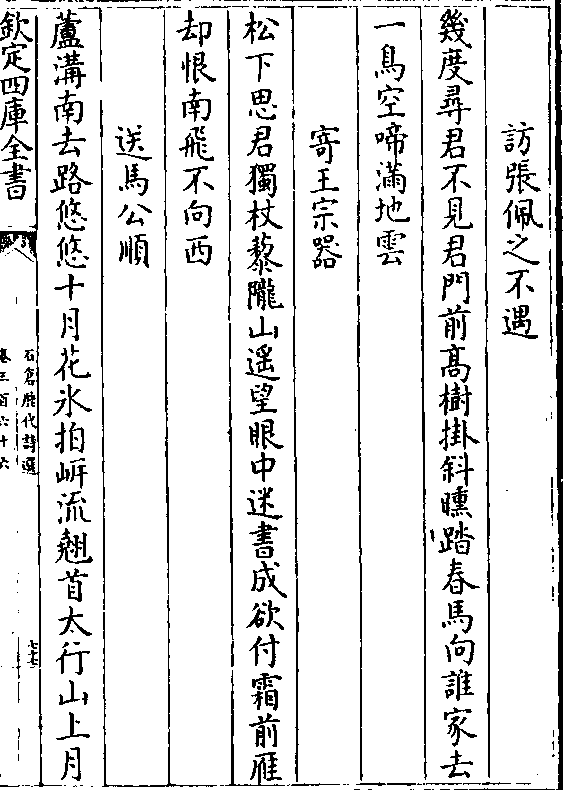 訪張佩之不遇
幾度尋君不見君門前髙樹掛斜曛踏春馬向誰家去
一鳥空啼滿地雲
寄王宗器
松下思君獨杖藜隴山遥望眼中迷書成欲付霜前雁
却恨南飛不向西
送馬公順
蘆溝南去路悠悠十月花氷拍㟁流翹首太行山上月
欽定四庫全書
石倉歷代詩選
卷三百六十六